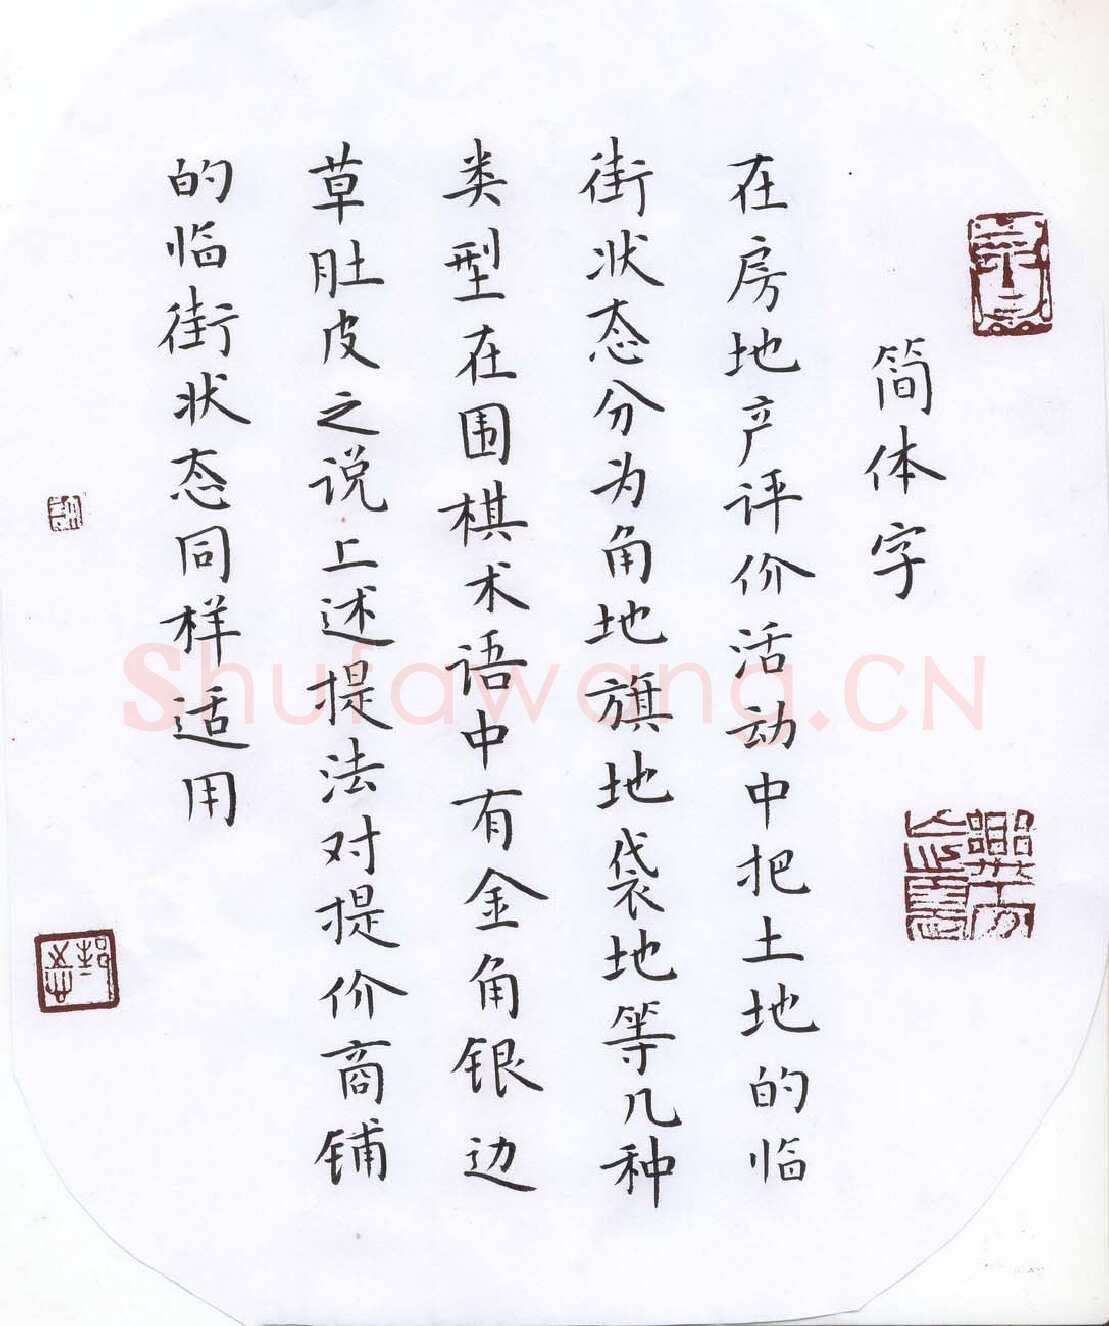 简体字
在房地产评价活动中把土地的临
街状态分为角地旗地袋地等几种
类型在围棋术语中有金角银边
草肚皮之说上述提法对提价商铺
的临街状态同样适用
Shufawang.CN